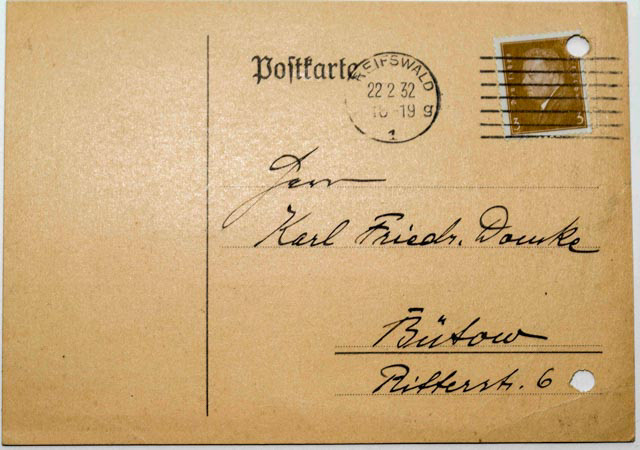 Postkarte
REIFSWALD
22 2 32
18-19 g
1
3 3
Herrn
Karl Friedr. Domke
Bütow
Ritterstr. 6